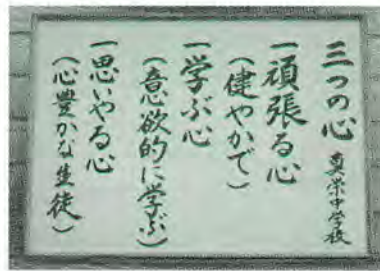 三つの心 真栄中学校
一頑張る心
(健やかで)
一学ぶ心
(意欲的に学ぶ)
一思いやる心
(心豊かな生徒)